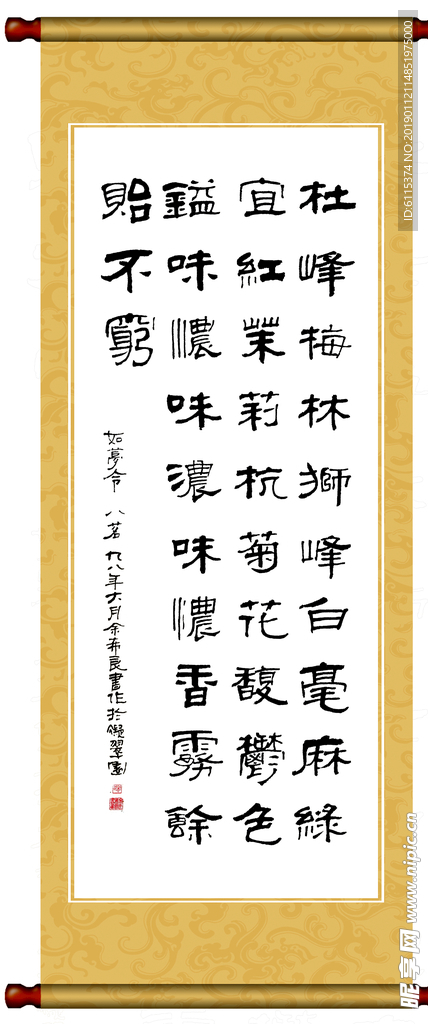 杜峰梅林狮峰白毫麻綠
宜紅茉莉杭菊花馥鬱色
鎰味濃味濃味濃香霧餘
貽不窮
如夢令 八茗 九八年六月余希良書作於凝翠園
ID:6115374 NO:20190112114851975000
昵享网 www.nipic.cn